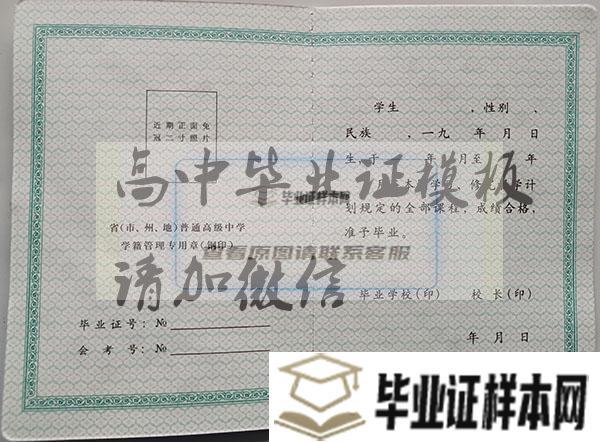 近期正面免
冠二寸照片
省(市、州、地)普通高级中学
学籍管理专用章(钢印)
毕业证号:№
会考号:№
学生 ,性别 、
民族 ,一九 年 月 日
生,于 年 月至 年
划规定的全部课程,成绩合格,
准予毕业。
毕业学校(印) 校长(印)
年 月 日
高中毕业证模板
请加微信
毕业证样本网
查看原图请联系客服
毕业证样本网